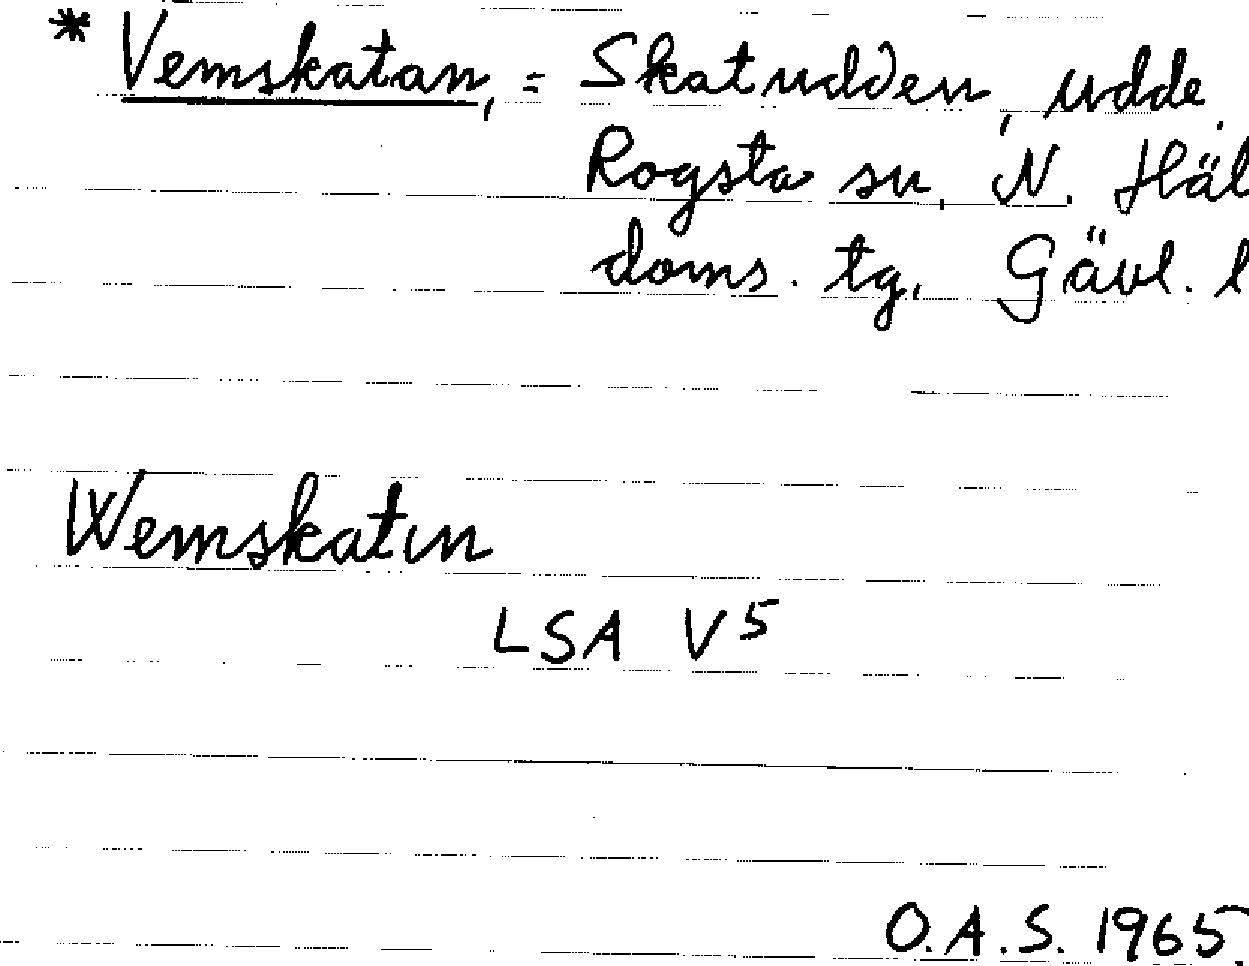 * Vemskatan, = Skatudden, udde.
Rogsta sn, N. Häl
doms. tg, Gävl. l
Wemskatin
LSA V5
O.A.S. 1965.